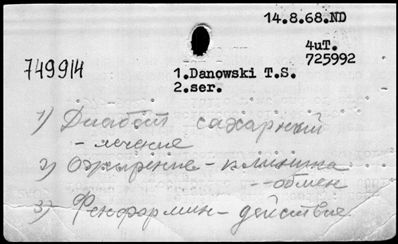 14.8.68.ND
4uT.
749914
725992
1.Danowski T.S.
2.ser.
1) Диабет сахарный
- лечение
2) Ожирение - клиника
- обмен
3) Фенформин - действие